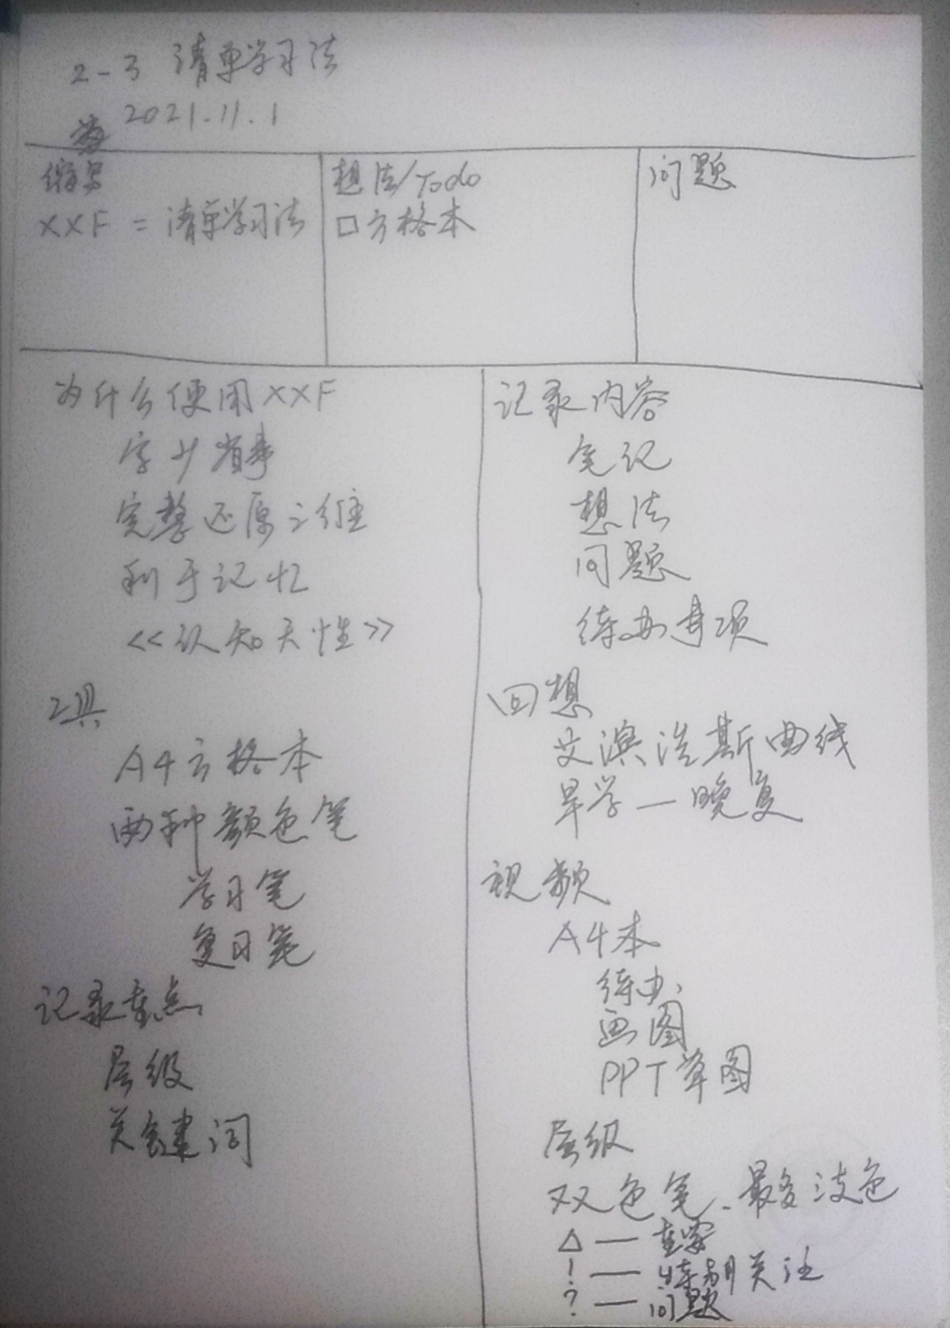 2-3 清单学习法
2021.11.1
缩写
XXF = 清单学习法
想法/Todo
□方格本
问题
为什么使用XXF
字少省事
完整还原三维
利于记忆
<<认知天性>>
工具
A4方格本
两种颜色笔
学习笔
复习笔
记录重点
层级
关键词
记录内容
笔记
想法
问题
待办事项
回想
艾滨浩斯曲线
早学一晚复
视频
A4本
待办
画图
PPT草图
层级
双色笔、最多三色
△ — 重要
! — 特别关注
? — 问题